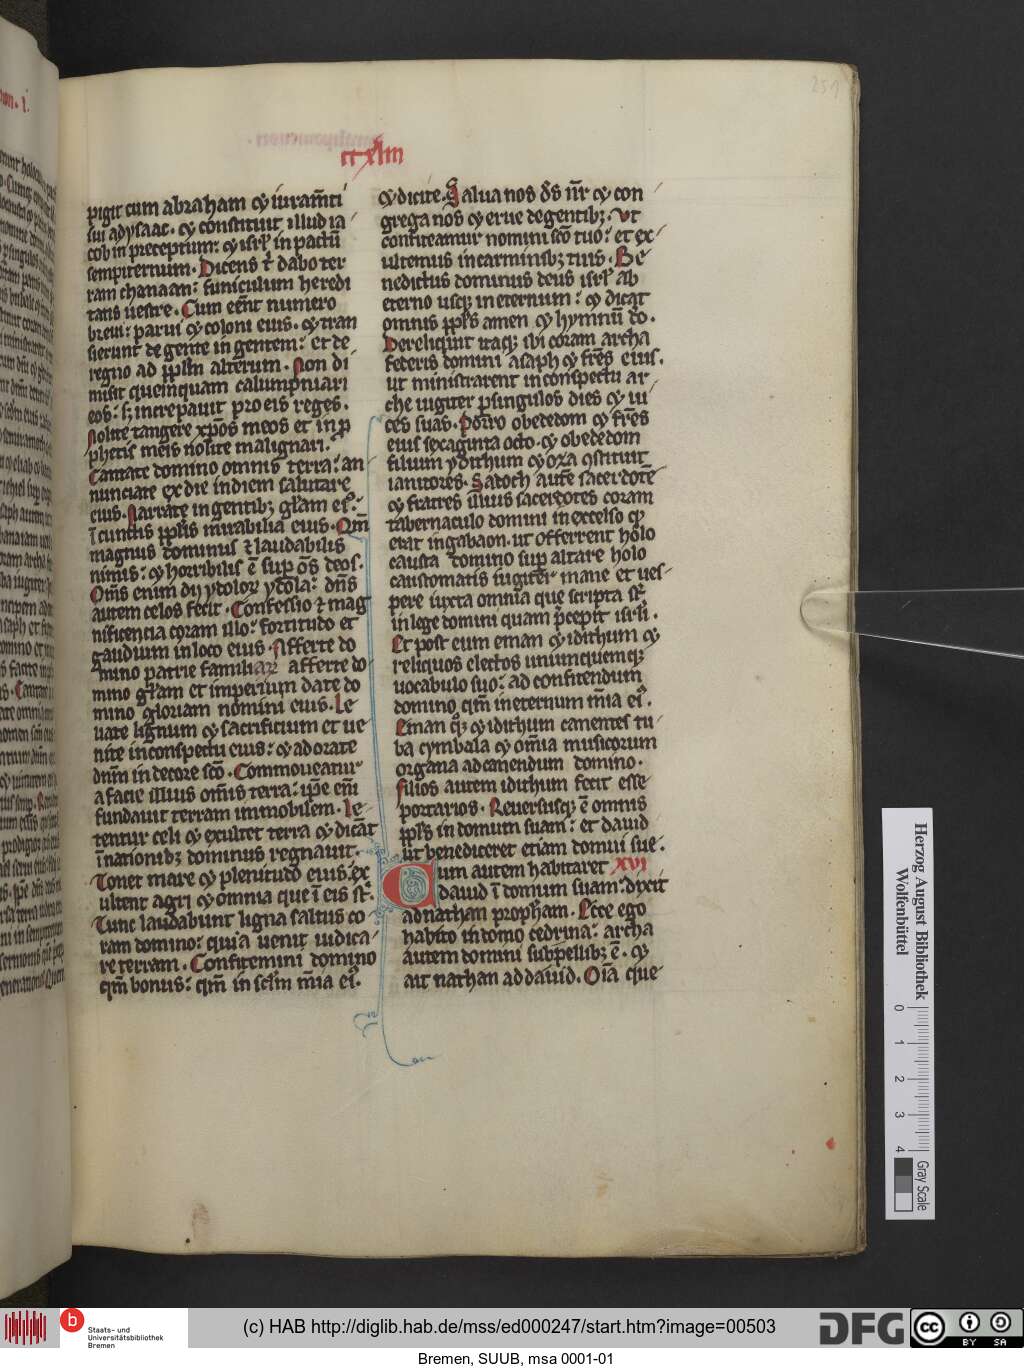 cc xliii
pigit cum abraham ⁊ iuram̄ti
sui ad ysaac. ⁊ constituit illud ia
cob in preceptum: ⁊ isrl̓ in pactū
sempiternum. Dicens t̓ dabo ter
ram chanaan: funiculum heredi
tatis uestre. Cum eēnt numero
breui: parui ⁊ coloni eius. ⁊ tran
sierunt de gente in gentem: et de
regno ad pplm alterum. Non di
misit quemquam calumpniari
eos: s; increpauit pro eis reges.
Nolite tangere xpos meos et in p
phetis meis nolite malignari.
Cantate domino omnis terra: an
nunciate ex die in diem salutare
eius. Narrate in gentib; gl̄am ei᷒.
ī cunctis ppl̄is mirabilia eius. Qm̄
magnus dominus ⁊ laudabilis
nimis: ⁊ horribilis ē sup̄ om̄s deos.
Om̄s enim dii ydolorꝝ ydola: dn̄s
autem celos fecit. Confessio ⁊ mag
nificencia coram illo: fortitudo et
gaudium in loco eius. Afferte do
mino patrie familiarꝝ afferte do
mino gl̄am et imperium date do
mino gloriam nomini eius. Le
uate lignum ⁊ sacrificium et ue
nite in conspectu eius: ⁊ adorate
dn̄m in decore sc̄o. Commoueatur
a facie illius om̄is terra: ip̄e em̄
fundauit terram immobilem. Le
tentur celi ⁊ exultet terra ⁊ dicāt
ī nationib; dominus regnauit.
Tonet mare ⁊ plenitudo eius: ex
ultent agri ⁊ omnia que ī eis st̄.
Tunc laudabunt ligna saltus co
ram domino: quia uenit iudica
re terram. Confitemini domino
qm̄ bonus: qm̄ in sclm̄ mīa ei᷒.
⁊ dicite. Salua nos ds̄ nr̄ ⁊ con
grega nos ⁊ erue de gentib;. Vt
confiteamur nomini sc̄o tuo: et ex
ultemus in carminib; tuis. Be
nedictus dominus deus isrl̓ ab
eterno usq; in eternum: ⁊ dicat
omnis ppl̄s amen ⁊ hymnū do.
Dereliquit itaq; ibi coram archa
federis domini asaph ⁊ fr̄es eius.
ut ministrarent in conspectu ar
che iugiter p singulos dies ⁊ ui
ces suas. Porro obededom ⁊ fr̄es
eius sexaginta octo. ⁊ obededom
filium ydithum ⁊ oza ꝯstituit
ianitores. Sadoch aut̄e sacerdotē
⁊ fratres illius sacerdotes coram
tabernaculo domini in excelso q̄
erat in gabaon. ut offerrent holo
causta domino sup̄ altare holo
caustomatis iugiter mane et ues
pere iuxta omnia que scripta st̄
in lege domini quam p̄cepit isrli.
Et post eum eman ⁊ idithum ⁊
reliquos electos unumquemq;
uocabulo suo: ad confitendum
domino qm̄ in eternum mīa ei᷒.
Eman q̄; ⁊ idithum canentes tu
ba cymbala ⁊ om̄ia musicorum
organa ad canendum domino.
Filios autem idithum fecit esse
portarios. Reuersusq; ē omnis
ppl̄s in domum suam: et dauid
ut benediceret etiam domui sue.
Cum autem habitaret XVI
dauid ī domum suam: dixit
ad nathan propham. Ecce ego
habito in domo cedrina: archa
autem domini sub pellib; ē. ⁊
ait nathan ad dauid. Oīa que
Herzog August Bibliothek
Wolfenbüttel
0 1 2 3 4
Gray Scale
b
Staats- und
Universitätsbibliothek
Bremen
(c) HAB http://diglib.hab.de/mss/ed000247/start.htm?image=00503
DFG
cc BY SA
Bremen, SUUB, msa 0001-01